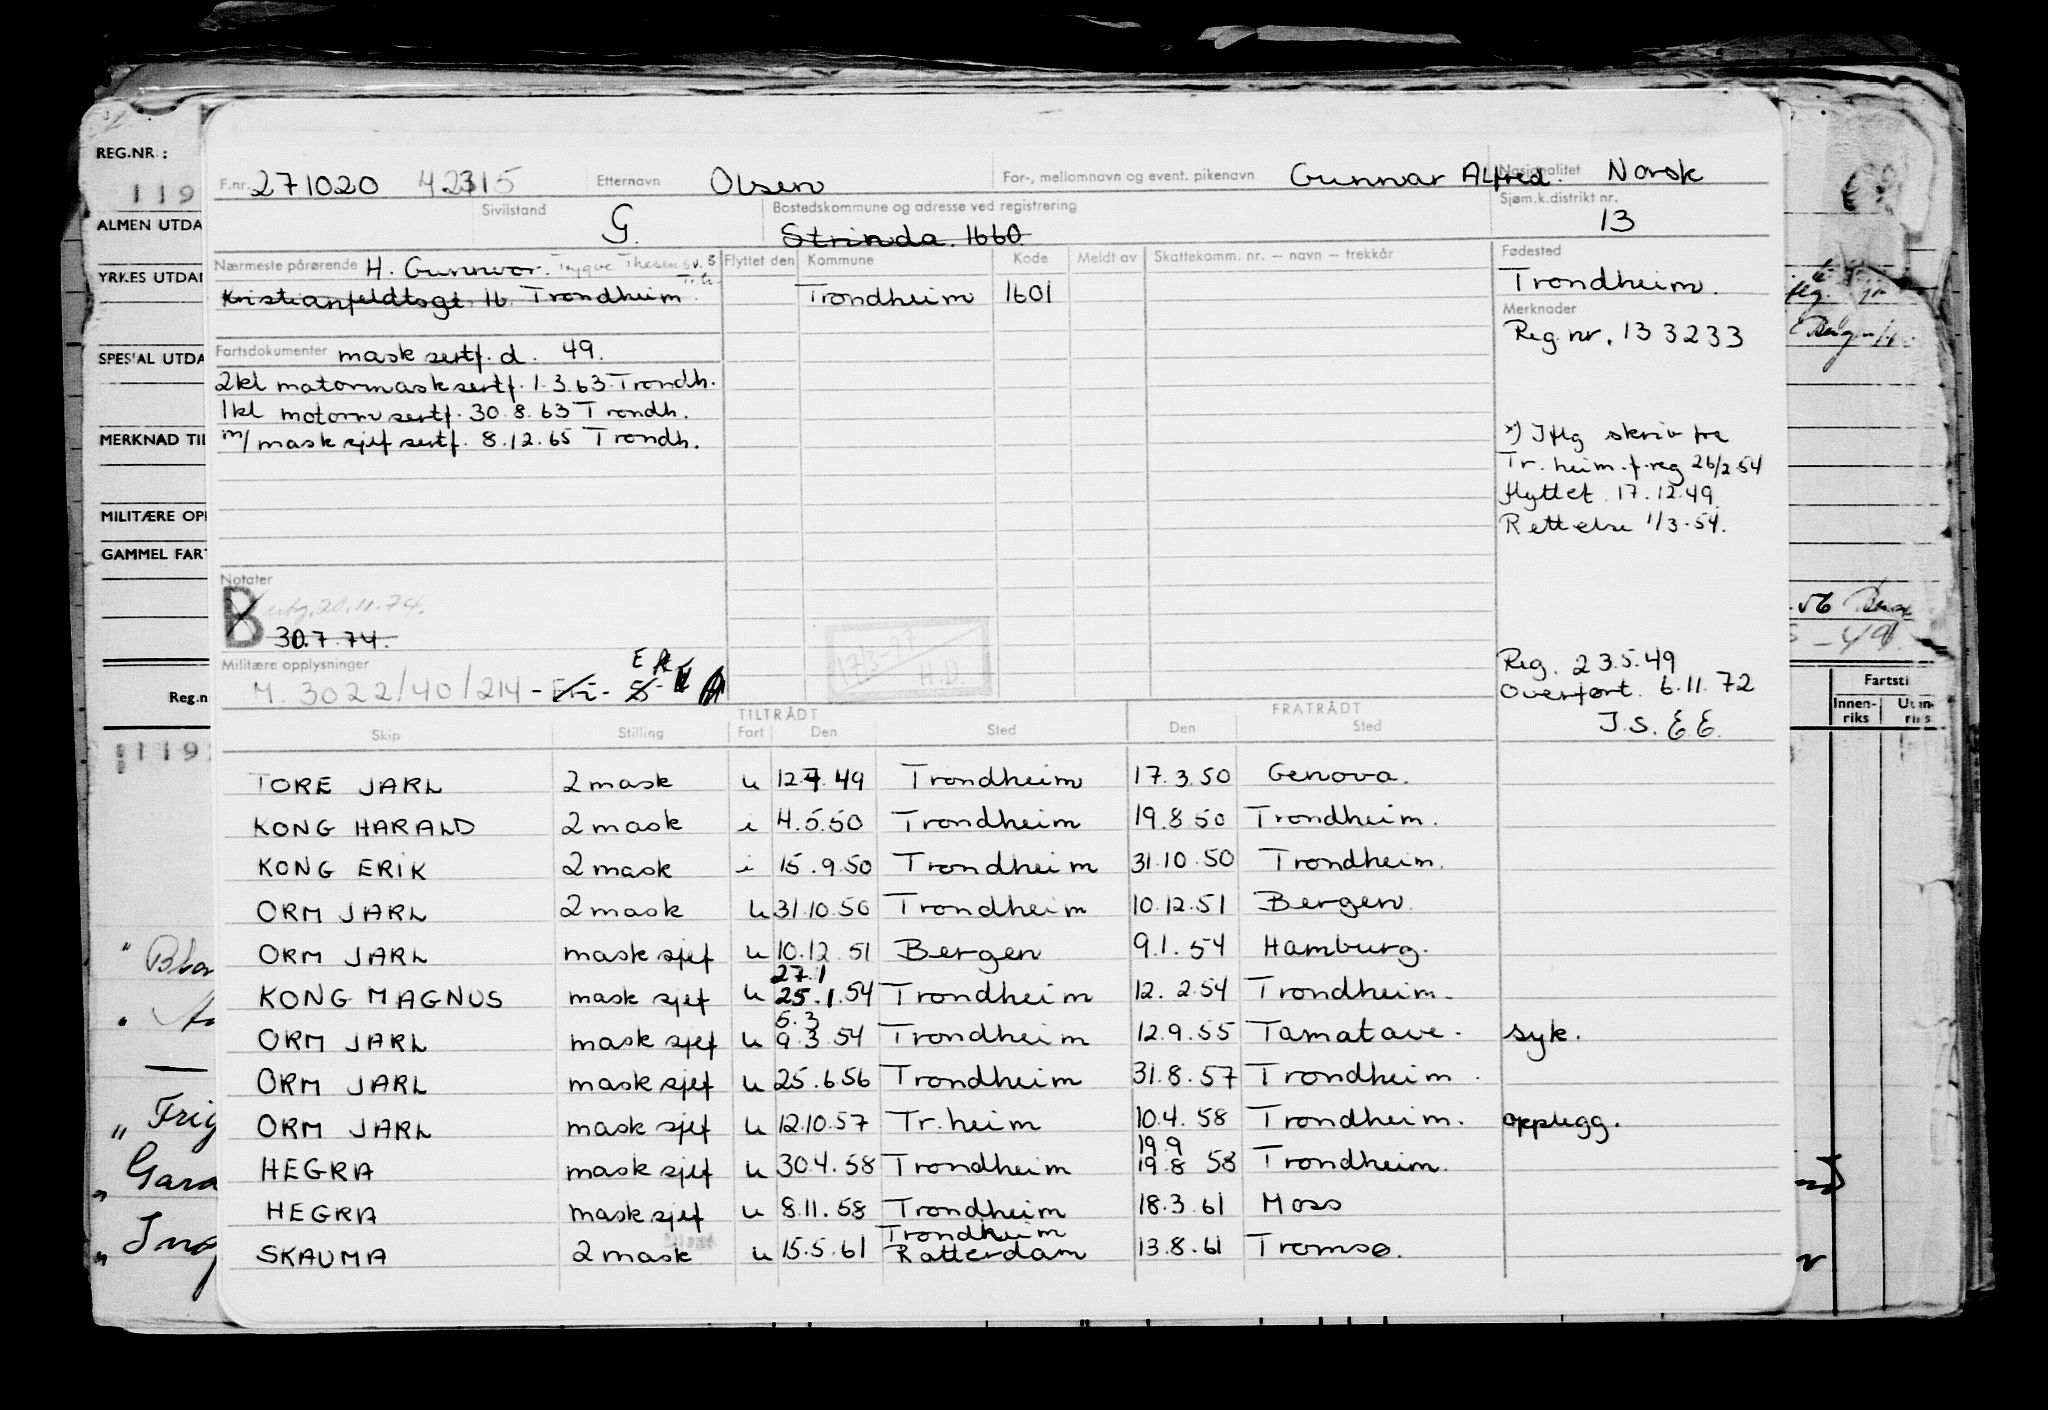 REG.NR :
119
ALMEN UTDA
YRKES UTDAN
SPESIAL UTDA
MERKNAD TIL
MILITÆRE OPP
GAMMEL FART
Reg.n
F.nr. 271020 42315 Etternavn Olsen For-, mellomnavn og event. pikenavn Gunnar Alfred. Nasjonalitet Norsk
Sivilstand G. Bostedskommune og adresse ved registrering Strinda. 1660 Sjøm.k.distrikt nr. 13
Nærmeste pårørende H. Gunnvor. Trygve Thesensv. 5 Tr.h Flyttet den Kommune Kode Meldt av Skattekomm. nr. – navn – trekkår Fødested
Kristianfeldtsgt 16. Trondheim. Trondheim 1601 Trondheim.
Merknader
Reg. nr. 133233
Fartsdokumenter mask sertf. d. 49.
2kl motormask sertf. 1.3.63 Trondh.
1kl motorm sertf. 30.8.63 Trondh.
m/ mask sjef sertf. 8.12.65 Trondh.
x) Iflg skriv fra
Tr. heim. f. reg 26/2 54
flyttet 17.12.49.
Rettelse 1/3-54.
Notater
B utg. 20.11.74.
30.7.74.
17/3-77
H.D.
Militære opplysninger
M. 3022/40/214 -
Reg. 23.5.49
Overført. 6.11.72
J.S. E E.
TILTRÅDT FRATRÅDT
Skip Stilling Fart Den Sted Den Sted
TORE JARL 2 mask u 12.7.49 Trondheim 17.3.50 Genova.
KONG HARALD 2 mask i 4.5.50 Trondheim 19.8.50 Trondheim.
KONG ERIK 2 mask i 15.9.50 Trondheim 31.10.50 Trondheim.
ORM JARL 2 mask u 31.10.50 Trondheim 10.12.51 Bergen.
ORM JARL mask sjef u 10.12.51 Bergen 9.1.54 Hamburg.
27.1
KONG MAGNUS mask sjef u 25.1.54 Trondheim 12.2.54 Trondheim.
5.3
ORM JARL mask sjef u 9.3.54 Trondheim 12.9.55 Tamatave. syk.
ORM JARL mask sjef u 25.6.56 Trondheim 31.8.57 Trondheim.
ORM JARL mask sjef u 12.10.57 Tr.heim 10.4.58 Trondheim. opplegg.
19.9
HEGRA mask sjef u 30.4.58 Trondheim 19.8 58 Trondheim.
HEGRA mask sjef u 8.11.58 Trondheim 18.3.61 Moss
Trondheim
SKAUMA 2 mask u 15.5.61 Rotterdam 13.8.61 Tromsø.
Fartsti
Innen-
riks
Utan-
riks